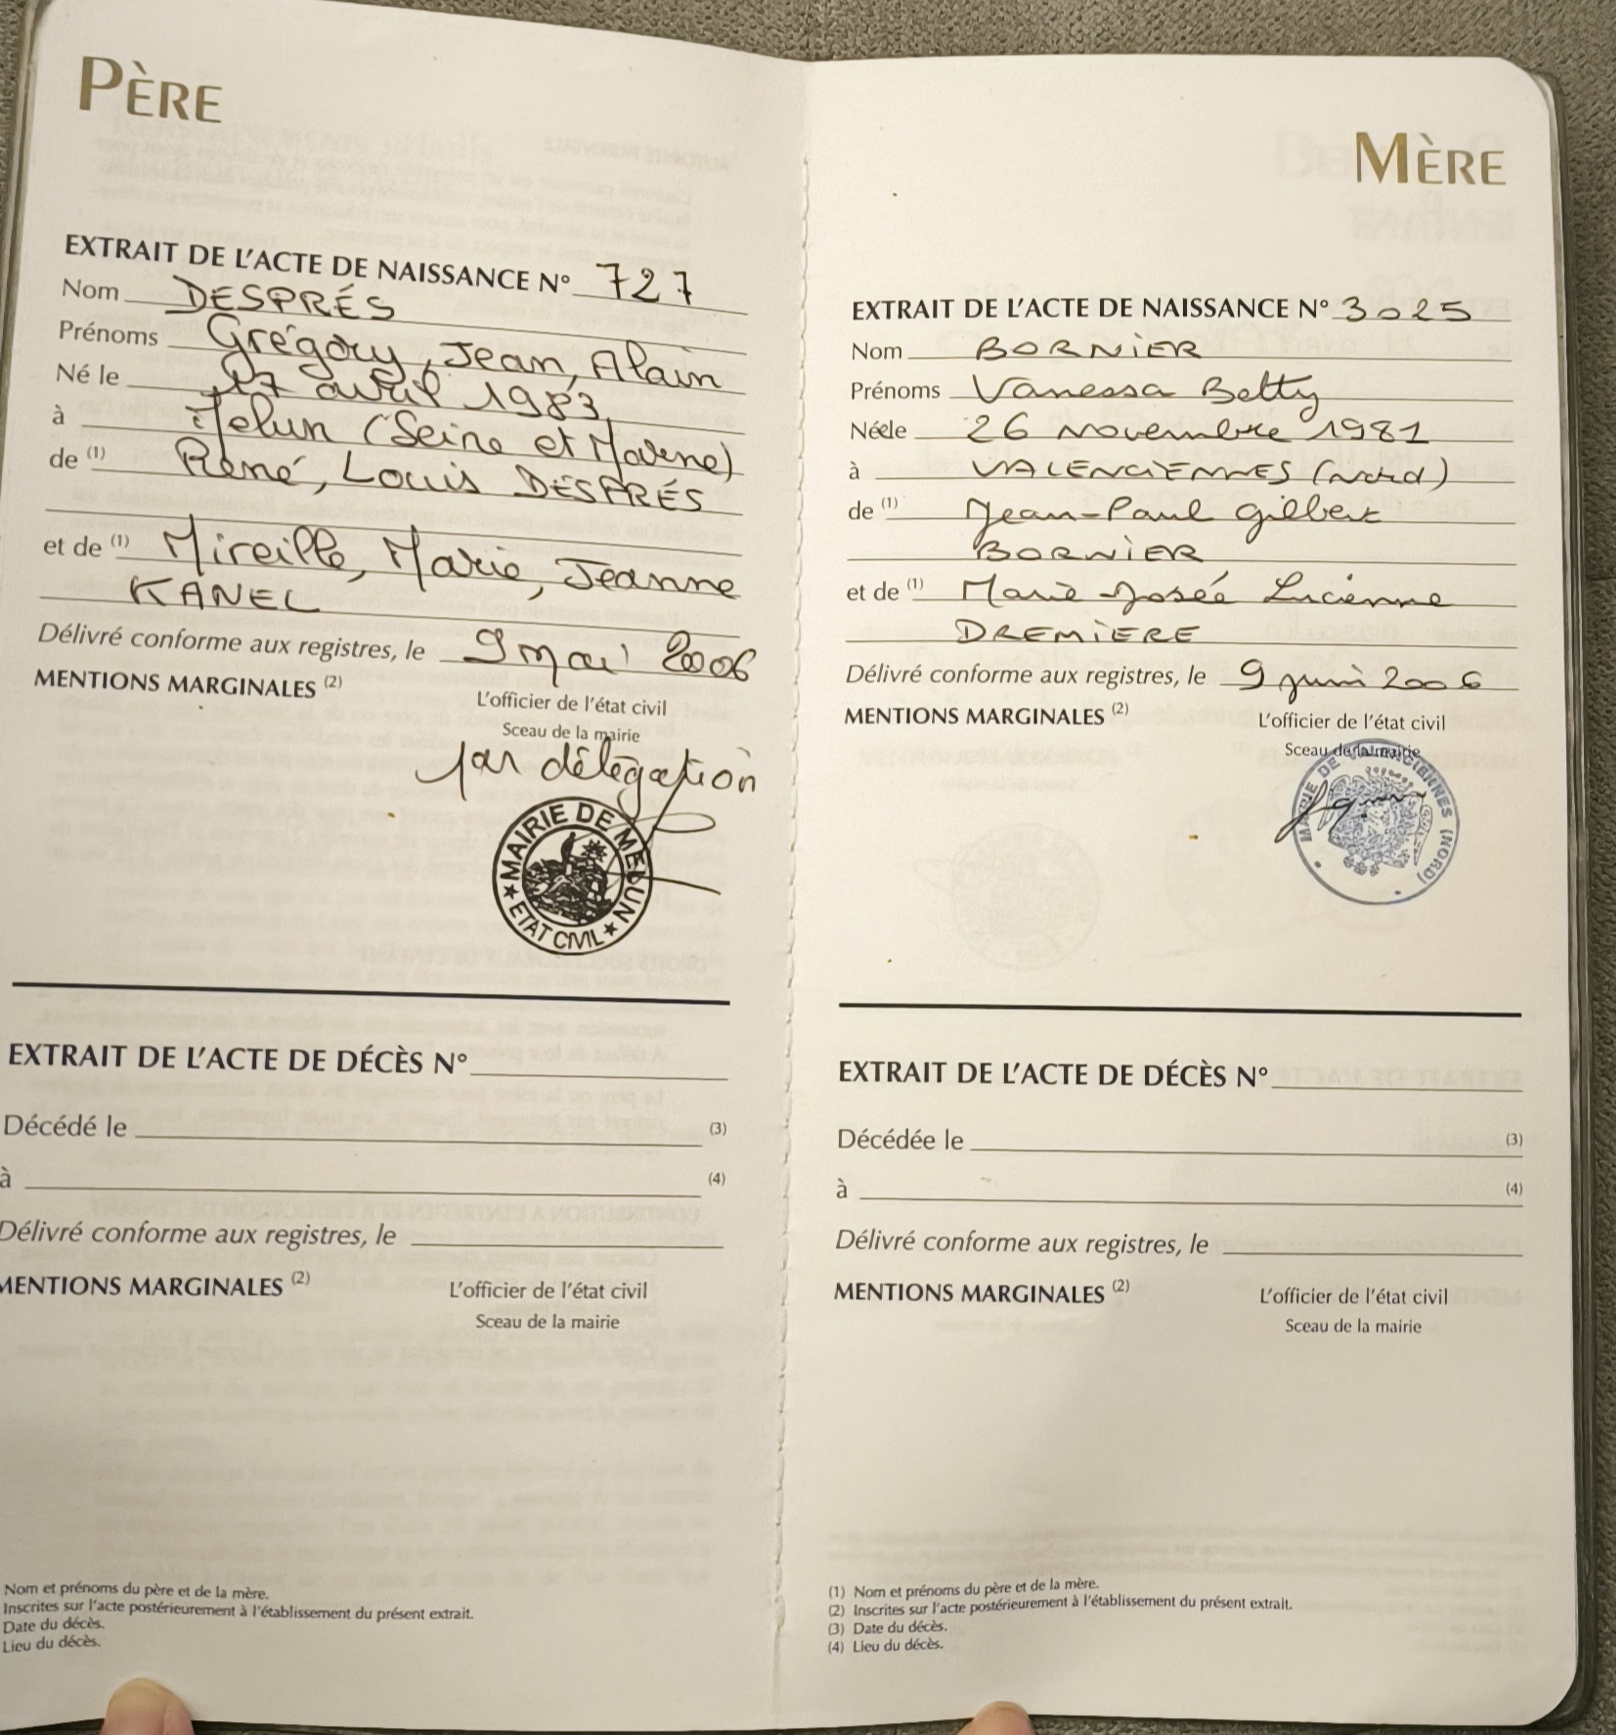 PÈRE
EXTRAIT DE L'ACTE DE NAISSANCE N° 727
Nom DESPRÉS
Prénoms Grégory, Jean, Alain
Né le 17 avril 1983
à Melun (Seine et Marne)
de (1) René, Louis DESPRÉS
et de (1) Mireille, Marie, Jeanne
KANEL
Délivré conforme aux registres, le 9 mai 2006
MENTIONS MARGINALES (2)
L'officier de l'état civil
Sceau de la mairie
par délégation
MAIRIE DE MELUN
ETAT CIVIL
EXTRAIT DE L'ACTE DE DÉCÈS N°
Décédé le (3)
à (4)
Délivré conforme aux registres, le
MENTIONS MARGINALES (2)
L'officier de l'état civil
Sceau de la mairie
Nom et prénoms du père et de la mère.
Inscrites sur l'acte postérieurement à l'établissement du présent extrait.
Date du décès.
Lieu du décès.
MÈRE
EXTRAIT DE L'ACTE DE NAISSANCE N° 3025
Nom BORNIER
Prénoms Vanessa Betty
Née le 26 novembre 1981
à VALENCIENNES (Nord)
de (1) Jean-Paul Gilbert
BORNIER
et de (1) Marie-Josée Lucienne
DREMIERE
Délivré conforme aux registres, le 9 juin 2006
MENTIONS MARGINALES (2)
L'officier de l'état civil
Sceau de la mairie
MAIRIE DE VALENCIENNES (NORD)
EXTRAIT DE L'ACTE DE DÉCÈS N°
Décédée le (3)
à (4)
Délivré conforme aux registres, le
MENTIONS MARGINALES (2)
L'officier de l'état civil
Sceau de la mairie
(1) Nom et prénoms du père et de la mère.
(2) Inscrites sur l'acte postérieurement à l'établissement du présent extrait.
(3) Date du décès.
(4) Lieu du décès.